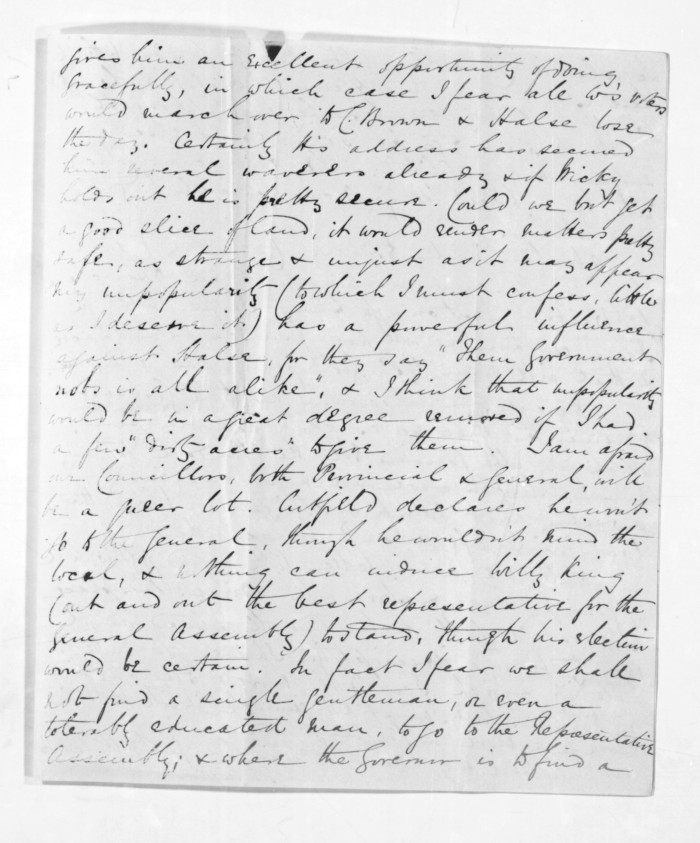 gives him an excellent opportunity of doing
gracefully, in which case I fear all W's voters
would march over to C. Brown & Halse lose
the day. Certainly His address has secured
him several waverers already & if Wicky
holds out he is pretty secure. Could we but get
a good slice of land, it would render matters pretty
safe, as strange & unjust as it may appear
my unpopularity (to which I must confess, little
as I deserve it) has a powerful influence
against Halse, for they say "Them Government
nobs is all alike", & I think that unpopularity
would be in a great degree removed if I had
a few "dirty acres" to give them. I am afraid
our Councillors, both Provincial & general, will
be a queer lot. Cutfield declares he won't
go to the General, though he wouldn't mind the
local, & nothing can induce Willy King
(out and out the best representative for the
General Assembly) to stand, though his election
would be certain. In fact I fear we shall
not find a single gentleman, or even a
tolerably educated man, to go to the Representative
Assembly; & where the Governor is to find a